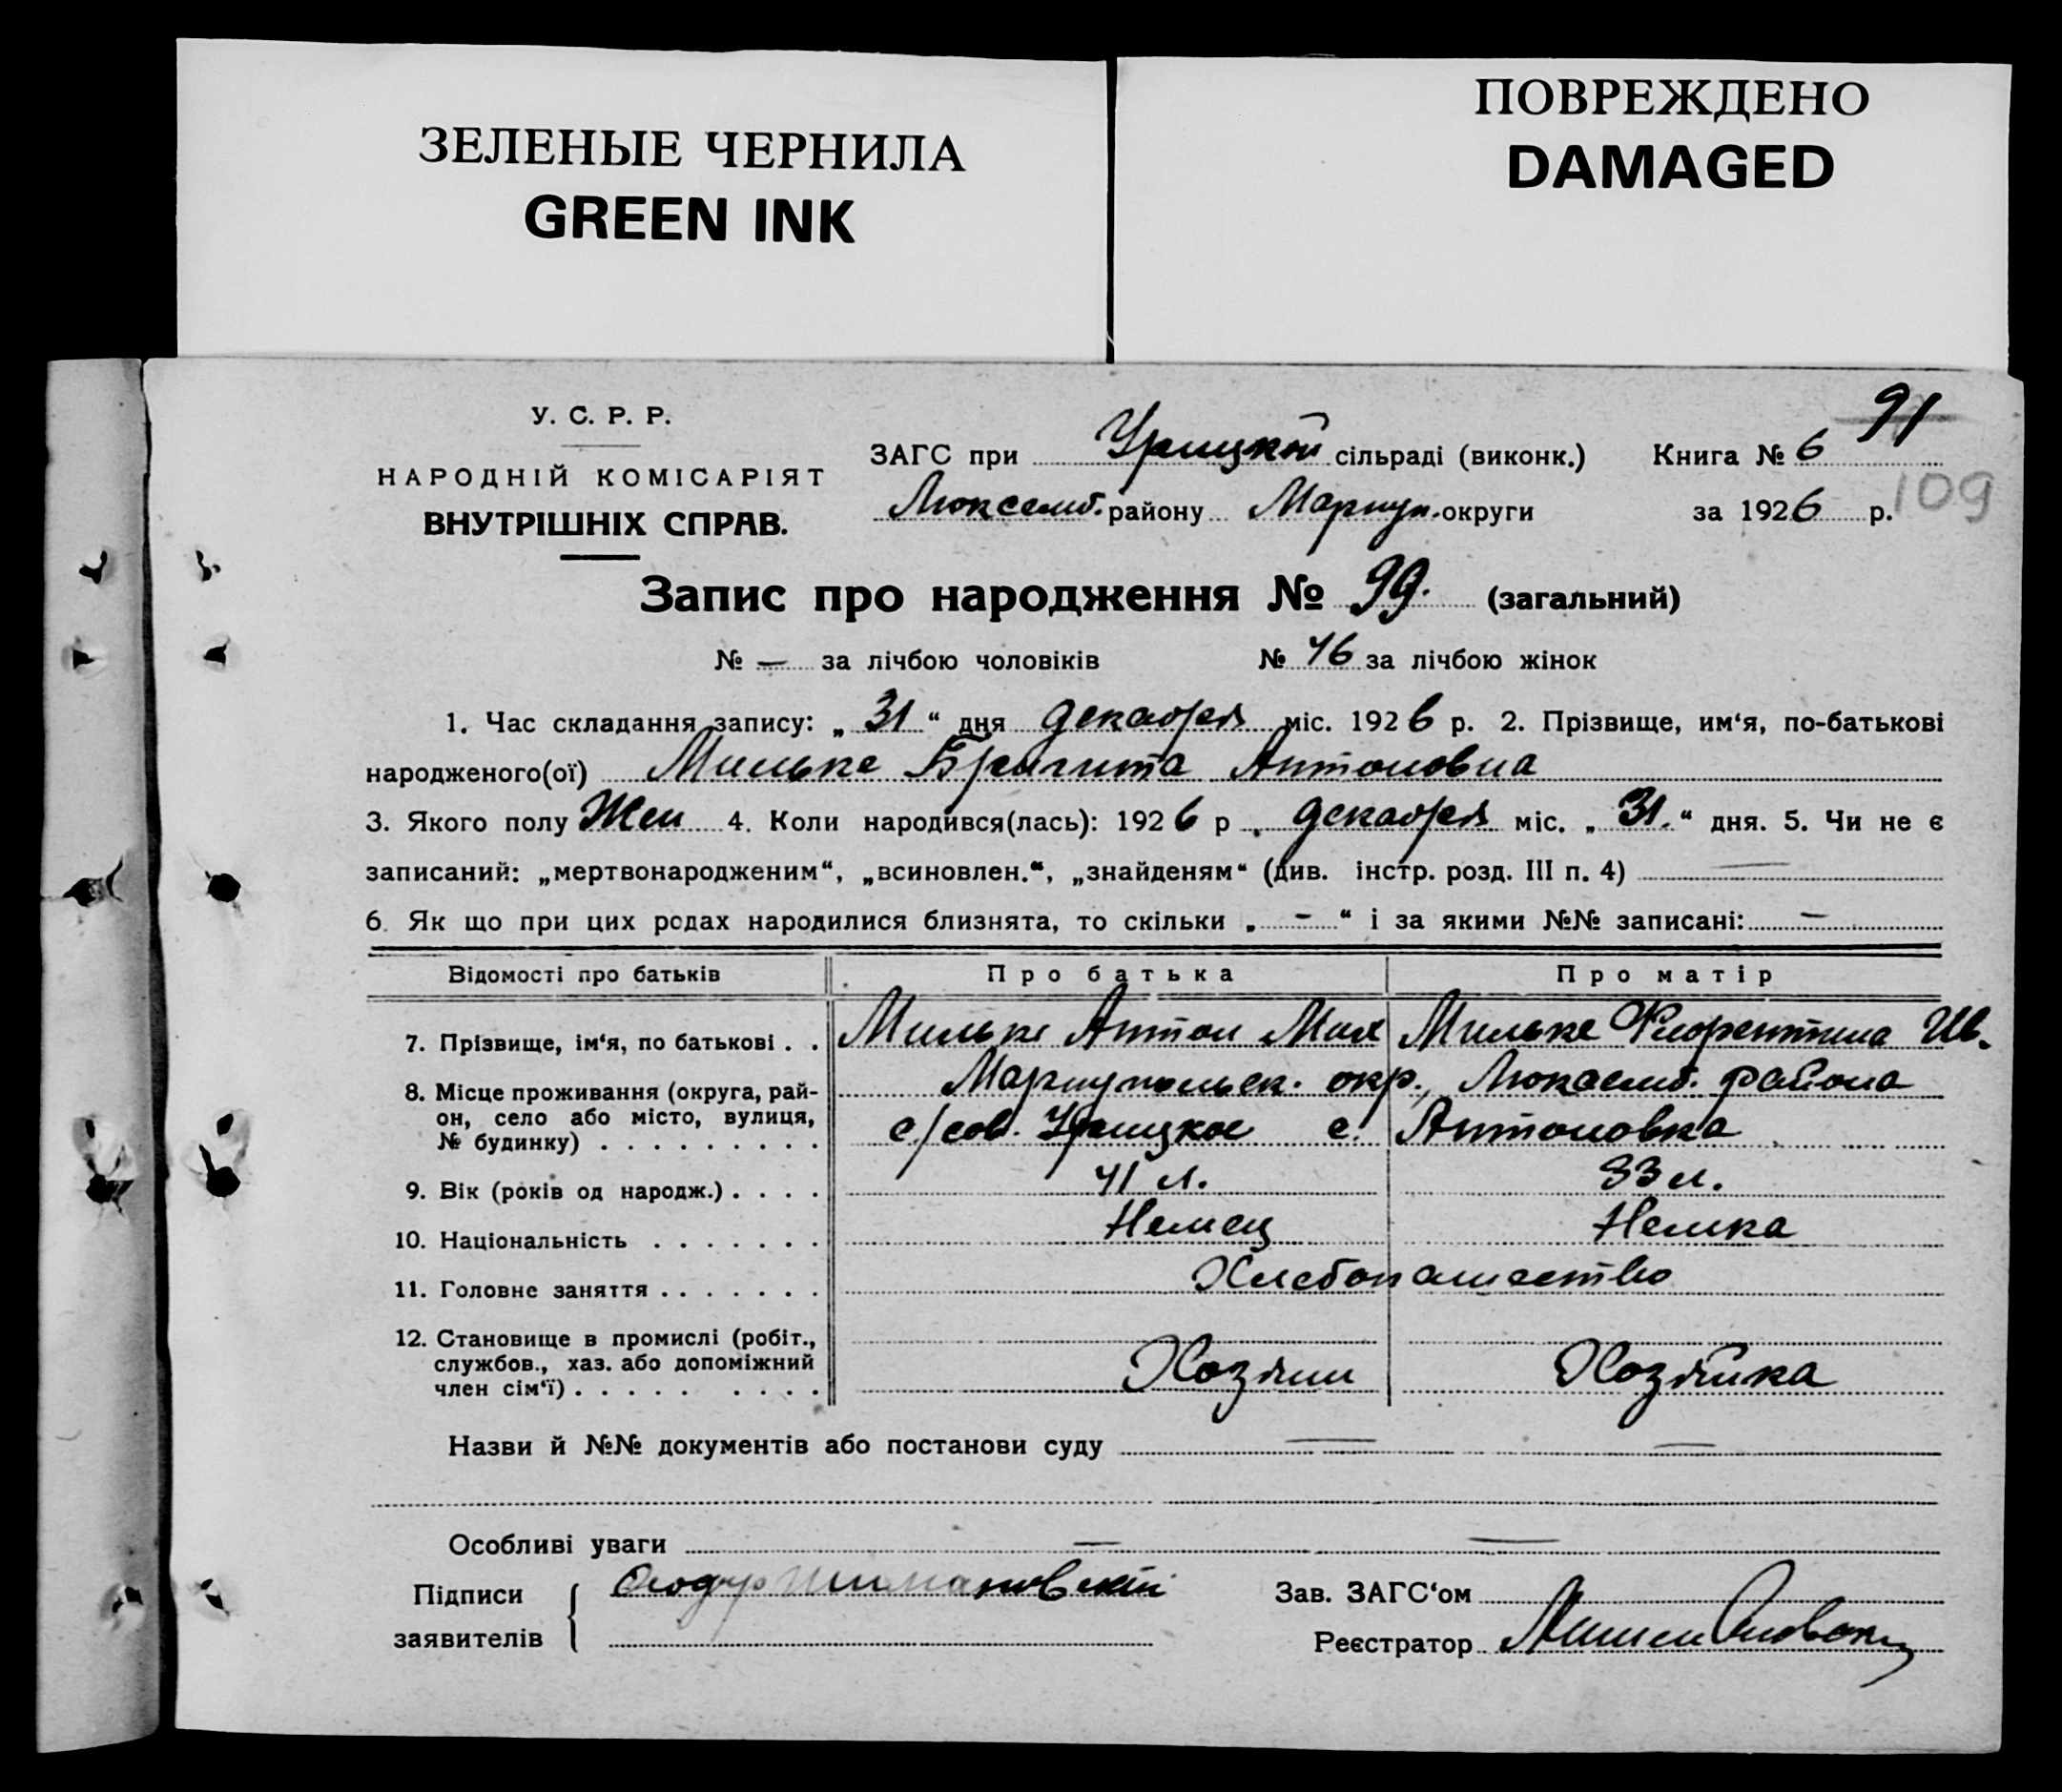 ЗЕЛЕНЫЕ ЧЕРНИЛА
GREEN INK
ПОВРЕЖДЕНО
DAMAGED
91
109
У. С. Р. Р.
НАРОДНІЙ КОМІСАРІЯТ
ВНУТРІШНІХ СПРАВ.
ЗАГС при Урицкой сільраді (виконк.) Книга № 6
Люксемб. району Мариуп. округи за 1926 р.
Запис про народження № 99. (загальний)
№ — за лічбою чоловіків № 46 за лічбою жінок
1. Час складання запису: „31“ дня декабря міс. 1926 р. 2. Прізвище, им‘я, по-батькові
народженого(ої) Мильке Бригита Антоновна
3. Якого полу Жен 4. Коли народився(лась): 1926 р. декабря міс. „31.“ дня. 5. Чи не є
записаний: „мертвонародженим“, „всиновлен.“, „знайденям“ (див. інстр. розд. III п. 4) —
6. Як що при цих родах народилися близнята, то скільки „—“ і за якими №№ записані: —
Відомості про батьків Про батька Про матір
7. Прізвище, ім‘я, по батькові . . Мильке Антон Мих Мильке Флорентина Ив.
8. Місце проживання (округа, рай- Мариупольск. окр., Люксемб. района
он, село або місто, вулиця, с/сов. Урицкое с. Антоновка
№ будинку) . . . . . . . . .
9. Вік (років од народж.) . . . . 41 л. 33 л.
10. Національність . . . . . . . Немец Немка
11. Головне заняття . . . . . . . Хлебопашество
12. Становище в промислі (робіт.,
службов., хаз. або допоміжний Хозяин Хозяйка
член сім‘ї) . . . . . . . . .
Назви й №№ документів або постанови суду — —
Особливі уваги — —
Підписи
заявителів
Зав. ЗАГС‘ом
Реєстратор